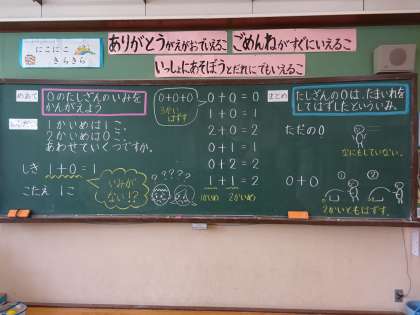 にこにこ
きらきら
ありがとうがえがおでいえるこ
ごめんねがすぐにいえるこ
いっしょにあそぼうとだれにでもいえるこ
めあて
0のたしざんのいみを
かんがえよう
1かいめは1こ
2かいめは0こ
あわせていくつですか。
しき 1+0=1
こたえ 1こ
いみが
ない!?
????
0+0+0
3かい
はずす
0+0=0
1+0=1
2+0=2
0+1=1
0+2=2
1+1=2
1かいめ 2かいめ
まとめ
たしざんの0は、たまいれを
してはずしたといういみ。
ただの0
なにもしていない。
0+0
2かいともはずす。